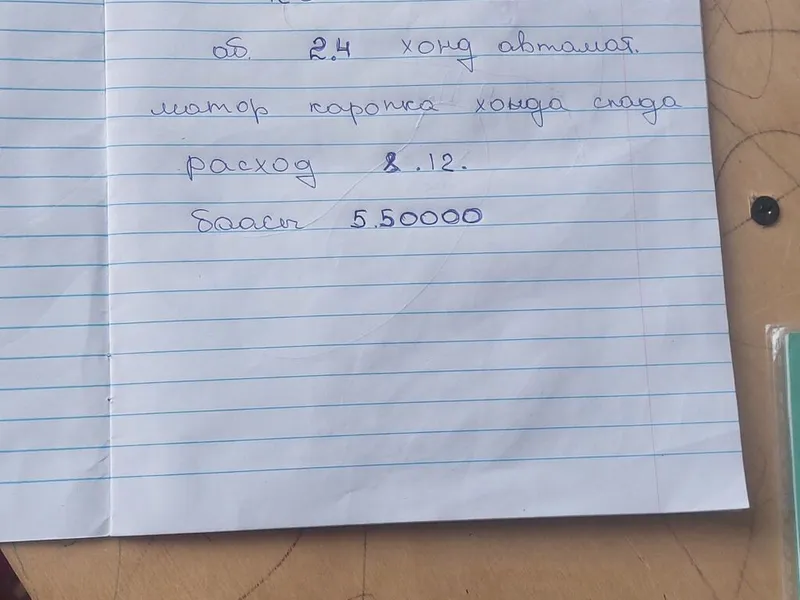 об. 2.4 хонд автамат.
матор каропка хонда спада
расход 8.12.
баасы 5.50000